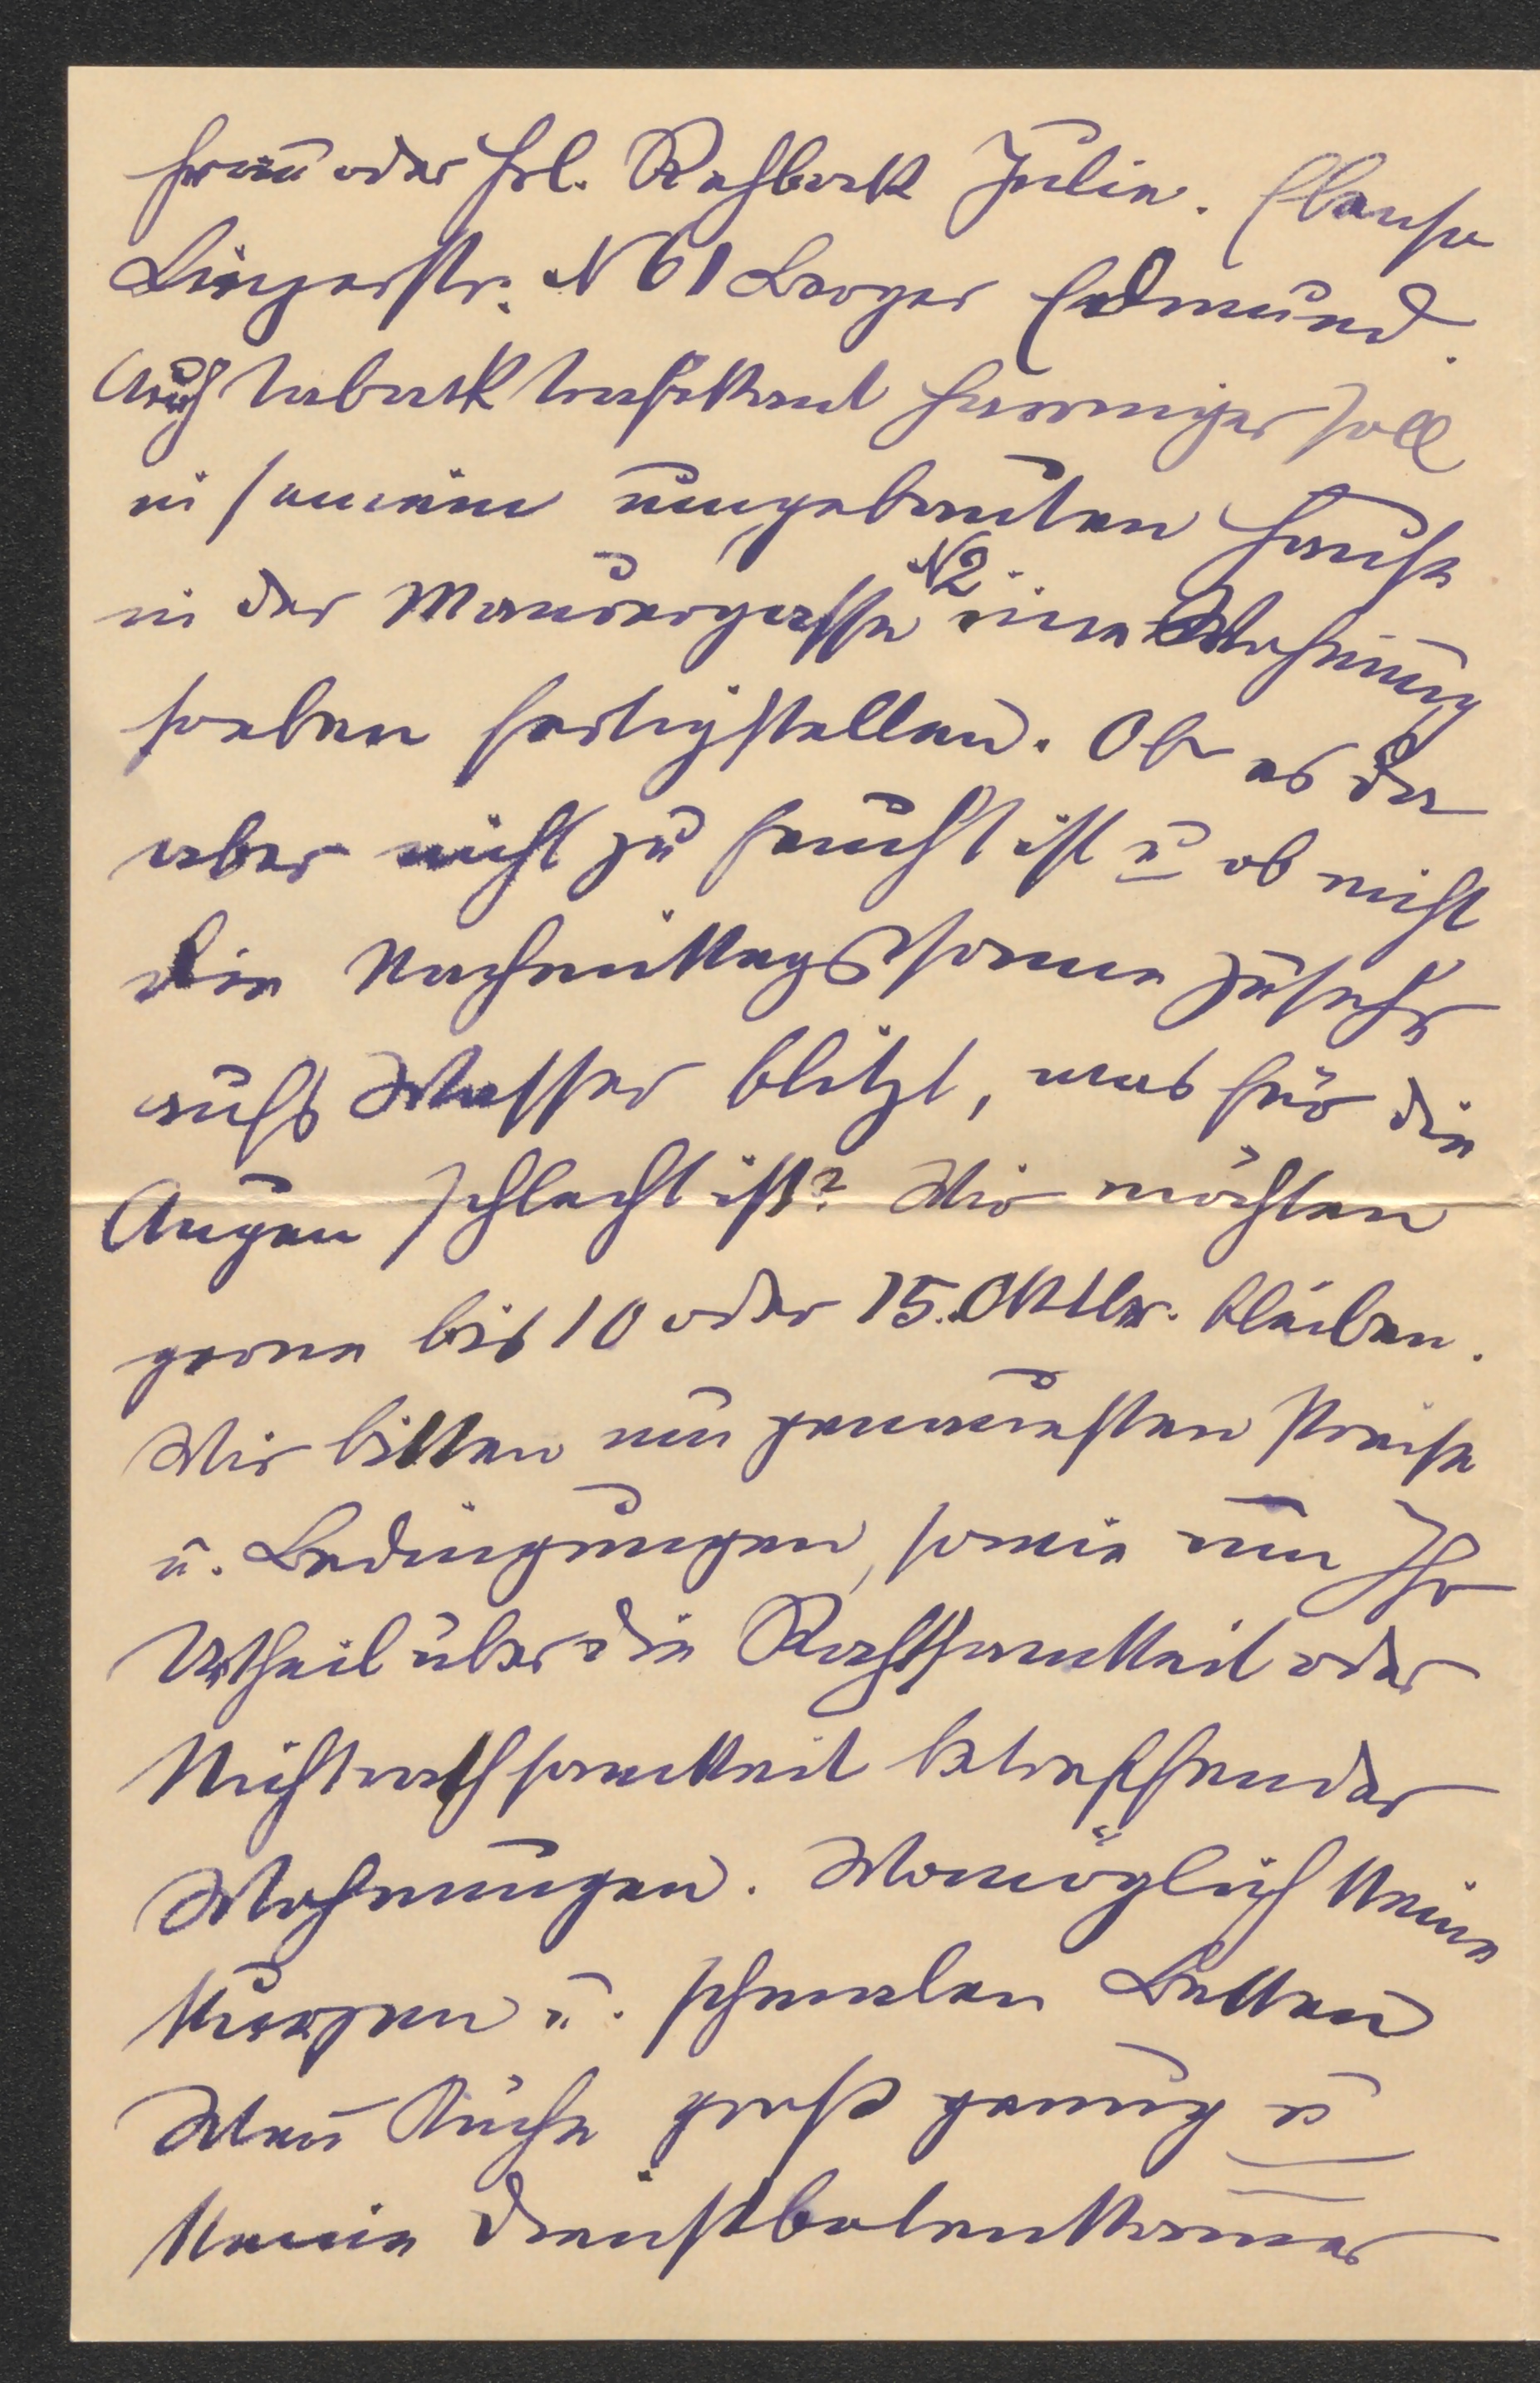 Frau oder Frl. Rehback Julie. Ebense
Linzerstr. N 61 Berger Edmund.
Auch Tabaktrafikant Preminger soll
in seinem umgebauten Hause
in der Mauergasse N2. eine Wohnung
soeben fertigstellen. Ob es da
aber nicht zu feucht ist u ob nicht
die Nachmittagssonne zusehr
aufs Wasser blitzt, was für die
Augen schlecht ist? Wir möchten
gerne bis 10 oder 15. Oktbr. bleiben.
Wir bitten um genauesten Preise
u. Bedingungen, sowie um Ihr
Urtheil über die Rathsamkeit oder
Nichtrathsamkeit betreffender
Wohnungen. Womöglich keine
kurzen u. schmalen Betten
Wenn Küche groß genug u
keine Dienstbotenkammer